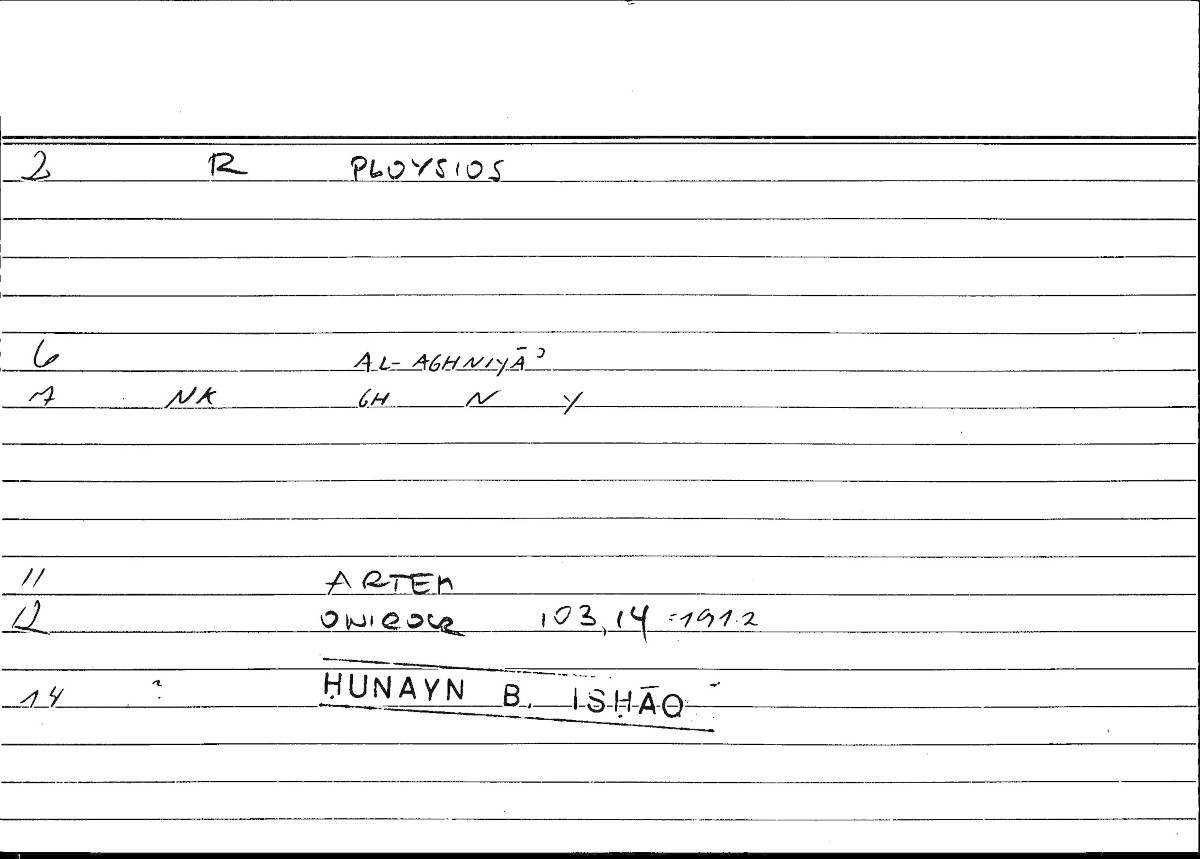 2 R PLOYSIOS
6 AL-AGHNIYĀʾ
7 NK GH N Y
11 ARTEM
12 ONIROCR 103,14 =191.2
14 ? ḤUNAYN B. ISḤĀQ